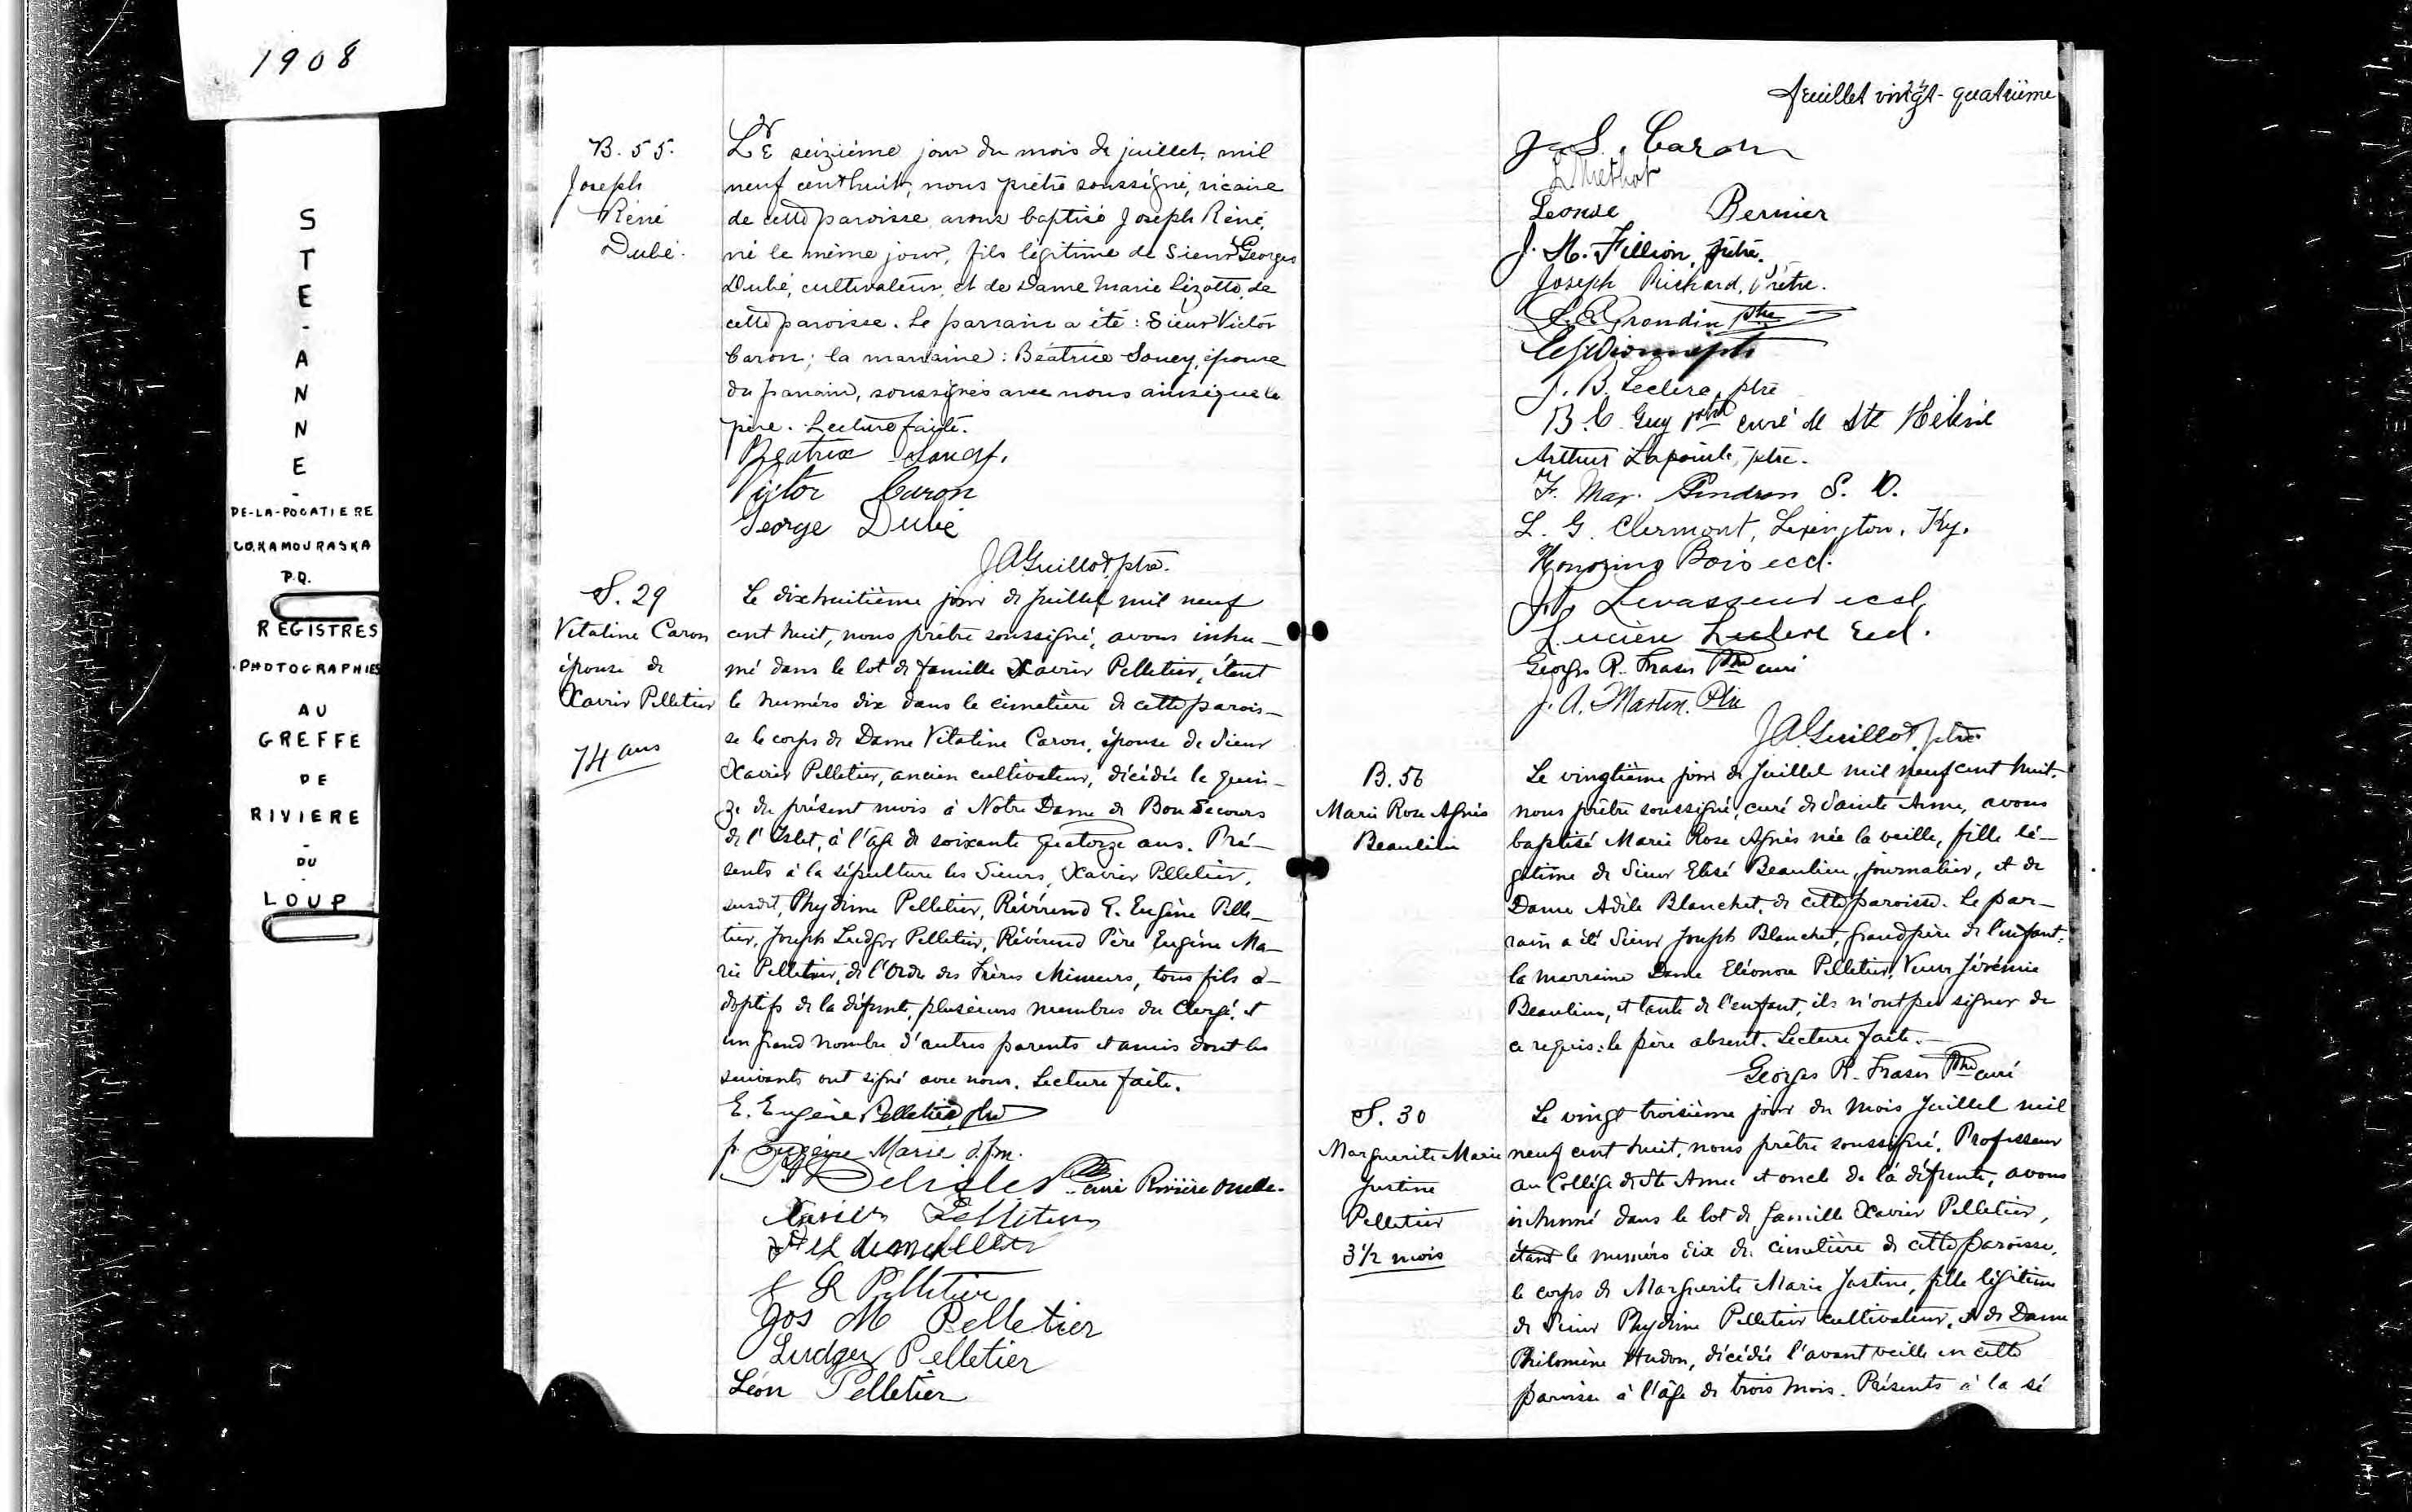 1908
STE-ANNE-
DE-LA-POCATIERE
CO. KAMOURASKA
P.Q.
REGISTRES
PHOTOGRAPHIES
AU
GREFFE
DE
RIVIERE
-
DU
-
LOUP
B. 55.
Joseph
Réné
Dubé.
Le seizième jour du mois de juillet, mil
neuf cent huit, nous prêtre soussigné, vicaire
de cette paroisse avons baptisé Joseph Réné,
né le même jour, fils légitime de Sieur Georges
Dubé, cultivateur, et de Dame Marie Lizotte, de
cette paroisse. Le parrain a été : Sieur Victor
Caron; la marraine : Béatrice Soucy, épouse
du parrain, soussignés avec nous ainsi que le
père. Lecture faite.
Béatrix Soucy.
Victor Caron
George Dubé
J A Guillot, ptre.
S. 29
Vitaline Caron
épouse de
Xavier Pelletier
74 ans
Le dixhuitième jour de Juillet mil neuf
cent huit, nous prêtre soussigné, avons inhu-
mé dans le lot de famille Xavier Pelletier, étant
le numéro dix dans le cimetière de cette parois-
se le corps de Dame Vitaline Caron, épouse de Sieur
Xavier Pelletier, ancien cultivateur, décédée le quin-
ze du présent mois à Notre Dame de Bon Secours
de l'Islet, à l'âge de soixante quatorze ans. Pré-
sents à la sépulture les Sieurs, Xavier Pelletier,
susdit, Phydime Pelletier, Révérend E. Eugène Pelle-
tier, Joseph Ludger Pelletier, Révérend Père Eugène Ma-
rie Pelletier, de l'Ordre des Frères Mineurs, tous fils a-
doptifs de la défunte, plusieurs membres du Clergé, et
un grand nombre d'autres parents et amis dont les
suivants ont signé avec nous. Lecture faite.
E. Eugène Pelletier, ptre
fr. Eugène Marie o.f.m.
Delisle Ptre curé Rivière Ouelle.
Xavier Pelletier
L Pelletier
Jos M Pelletier
Ludger Pelletier
Léon Pelletier
feuillet vingt-quatrième
J. S. Caron
L Methot
Leonce Bernier
J. H. Fillion, ptre.
Joseph Richard, Prêtre.
Grondin ptre
J. B. Leclerc, ptre
B. C. Guy ptre curé de Ste Hélène
Arthur Lapointe, ptre.
F. Max. Gendron S. D.
L. G. Clermont, Lexington, Ky.
Honorius Bois eccl.
Levasseur eccl.
Lucien Leclerc Eccl.
Georges R. Fraser Ptre curé
J. A. Martin. Ptre
J A Guillot, ptre
B. 56
Marie Rose Agnès
Beaulieu
Le vingtième jour de Juillet mil neuf cent huit.
nous prêtre soussigné, curé de Sainte Anne, avons
baptisé Marie Rose Agnès née la veille, fille lé-
gitime de Sieur Elisé Beaulieu, journalier, et de
Dame Adèle Blanchet, de cette paroisse. Le par-
rain a été Sieur Joseph Blanchet, grand père de l'enfant:
la marraine Dame Eléonore Pelletier, Veuve Jérémie
Beaulieu, et tante de l'enfant, ils n'ont pu signer de
ce requis: le père absent. Lecture faite.
Georges R. Fraser Ptre curé
S. 30
Marguerite Marie
Justine
Pelletier
3 1/2 mois
Le vingt troisième jour du mois Juillet mil
neuf cent huit, nous prêtre soussigné, Professeur
au Collège de Ste Anne et oncle de la défunte, avons
inhumé dans le lot de famille Xavier Pelletier,
étant le numéro dix du cimetière de cette paroisse,
le corps de Marguerite Marie Justine, fille légitime
de Sieur Phydime Pelletier cultivateur, et de Dame
Philomène Hudon, décédée l'avant veille en cette
paroisse à l'âge de trois mois. Présents à la sé